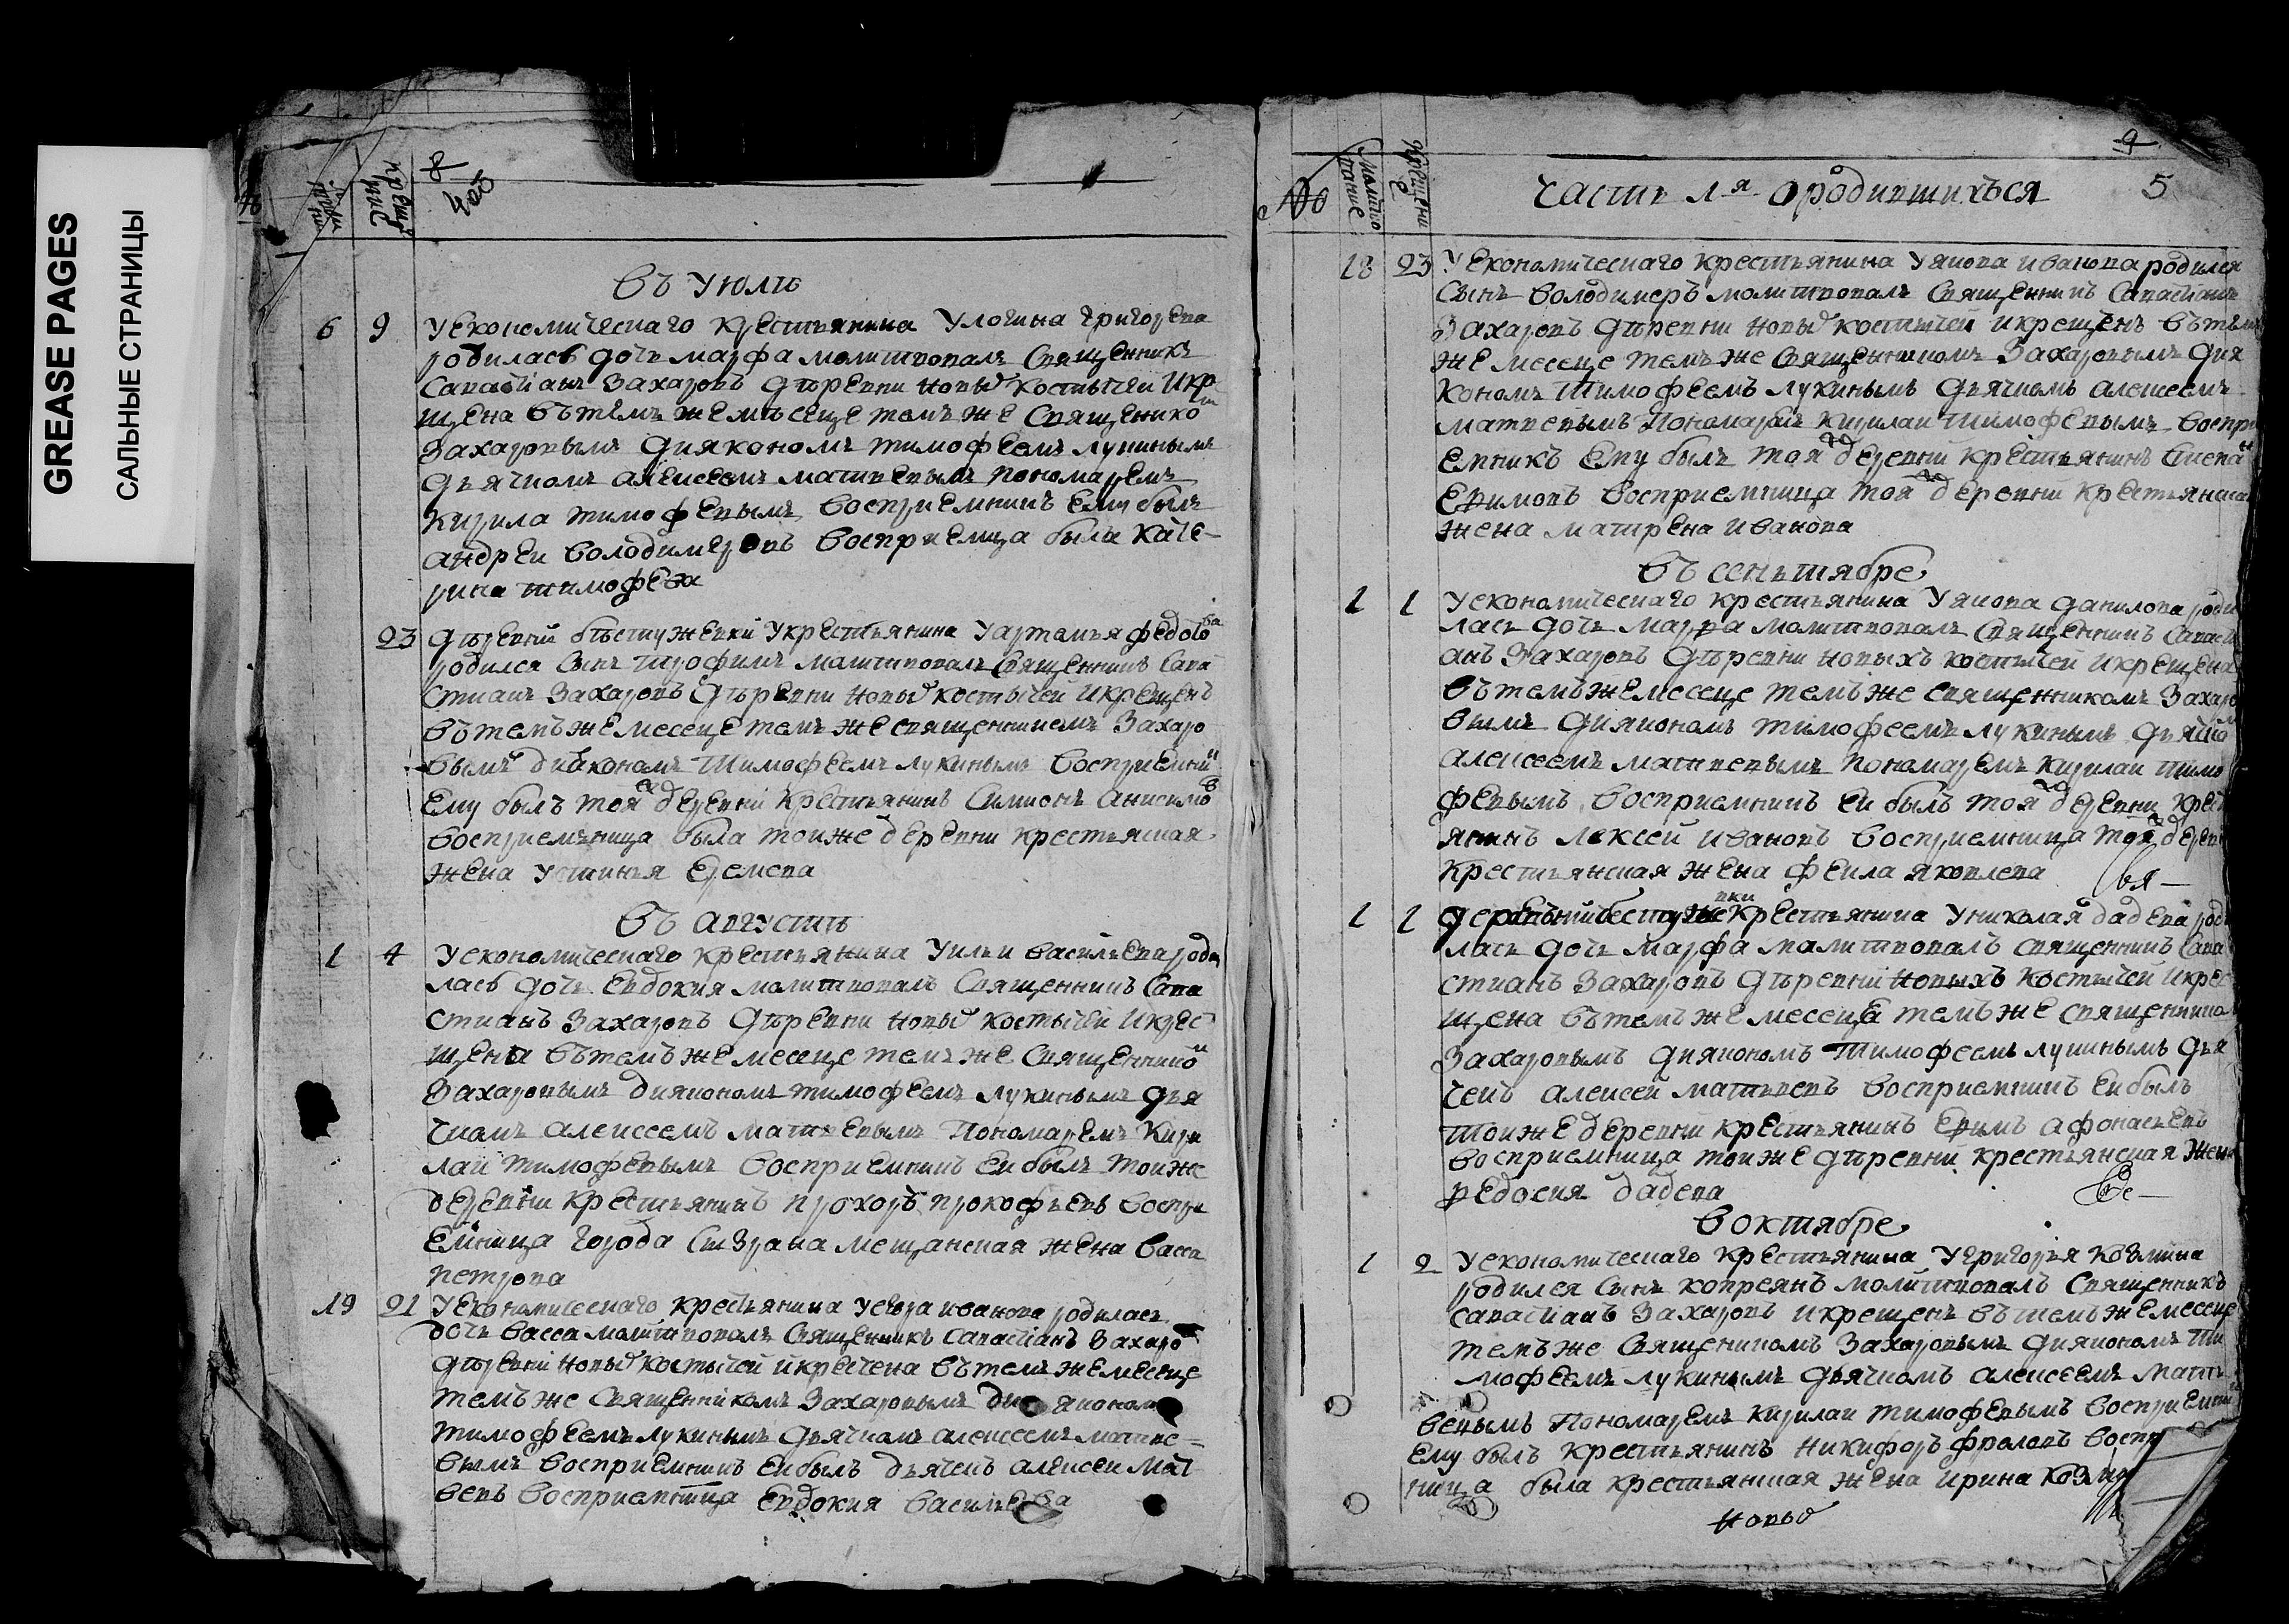 GREASE PAGES
САЛЬНЫЕ СТРАНИЦЫ
8
въ Июли
6 9 У економическаго крестьянина У логина григорева
родилась дочь марфа молитвовалъ Священникъ
Савастианъ Захаровъ деревни новых костычеи И кре
щена вътемъ же месеце темъ же Священико
Захаровымъ дияконом тимофеемъ лукинымъ
дьячкомъ алексеемъ матвевымъ пономаремъ
кирила тимофевымъ восприемникъ ему былъ
андреи володимеровъ восприемца была кате-
рина тимофева
23 деревни бестужевки У крестьянина У артамья федотова
родился Сынъ трофимъ молитвовалъ Священникъ Сава
стианъ Захаровъ деревни новых костычей И крещенъ
вътемъ же месеце темъ же священникемъ Захаро
вымъ дияконамъ тимофеемъ лукинымъ восприемник
Ему былъ тоя ж деревни крестьянинъ Симионъ анисимов
восприемъница была тоиже деревни крестьянская
жена устинья Еремева
въ августе
1 4 У економическаго крестьянина У ильи василева роди
лась дочь Евдокия молитвовалъ Священникъ Сава
стианъ Захаровъ деревни новых костычеи И крес
щена вътемъ же месеце темъ же Священнико
Захаровымъ дияконом тимофеемъ лукинымъ дья
чкомъ алексеемъ матвевымъ пономаремъ Кири
лаи тимофевымъ восприемникъ еи былъ тоиже
деревни крестьянинъ прохоръ прокофьевъ воспри
емница города Сызрана мещанская жена васса
петрова
19 21 У економическаго крестьянина У егора иванова родилась
дочь васса молитвовалъ Священникъ Савастианъ Захаро
деревни новых костычей и крещена вътемъ же месеце
темъ же Священникомъ Захаровымъ дияконом
тимофеемъ лукинымъ дьячкомъ алексеемъ матве-
вымъ восприемникъ еи былъ дьячекъ алексеи мат
вевъ восприемница Евдокия василева
9
№ молитвование крещение Часть 1я о родившихъся 5
18 23 У економическаго крестьянина У якова иванова родился
Сынъ володимеръ молитвовалъ Священникъ Савастианъ
Захаровъ деревни новых костычей и крещенъ вътемъ
же месеце темъ же Священникомъ Захаровымъ дия
кономъ тимофеемъ лукинымъ дьячкомъ алексеемъ
матвевымъ Пономарем Кирилаи тимофевымъ воспри
емникъ Ему былъ тоя ж деревни крестьянинъ степан
Ефимовъ восприемница тоя ж деревни крестьянска
жена матрена иванова
въ сеньтябре
1 1 У економическаго крестьянина У якова данилова роди
лась дочь марфа молитвовалъ Священникъ Савасти
анъ Захаровъ деревни новыхъ костычей и крещена
вътемъ же месеце темъ же священникомъ Захаро
вымъ дияконом тимофеемъ лукинымъ дьячко
алексеемъ матвевымъ пономаремъ кирилаи тимо
февымъ восприемникъ еи былъ тоя ж деревни крест
янинъ алексей ивановъ восприемница тоя ж деревн
крестьянская жена феила яковлева
1 1 деревни бестужевки крестьянина У николая дадева роди
лась дочь марфа малитвовалъ священникъ Сава
стианъ Захаровъ деревни новыхъ костычей И кре
щена вътемъ же месеце темъ же священника
Захаровымъ дияконом тимофеемъ лукинымъ дья
чекъ алексей матвевъ восприемникъ еи былъ
тоиже деревни крестьянинъ Ефимъ афонасьевъ
восприемница тоиже деревни крестьянская жена
федосия дадева
в октябре
1 2 У економическаго крестьянина У григорья козмина
родился Сынъ копреянъ молитвовалъ Священникъ
савастианъ Захаровъ и крещенъ вътемъ же месеце
темъ же Священикомъ Захаровымъ дияконом ти
мофеемъ лукинымъ дьячкомъ алексеемъ матъ
вевымъ Пономаремъ кирилаи тимофевымъ восприемни
ему былъ крестьянинъ никифоръ фроловъ воспр
ница была крестьянская жена ирина козми
новых